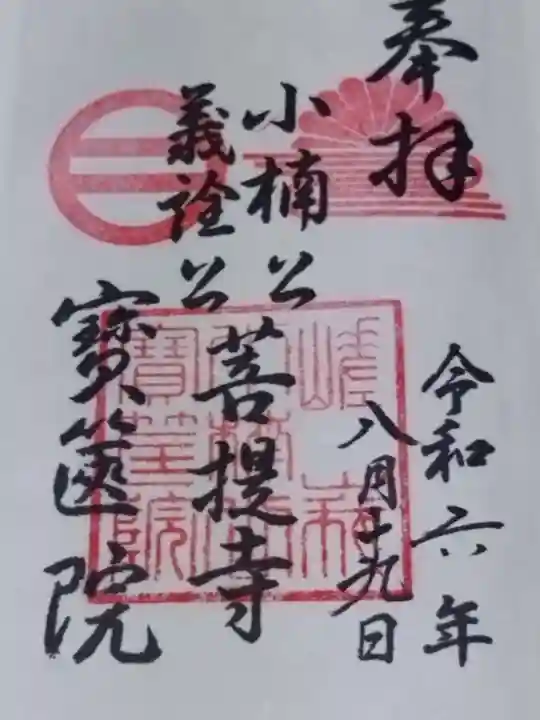 奉拝
令和六年
八月十九日
小楠公
義詮公
菩提寺
寳篋院